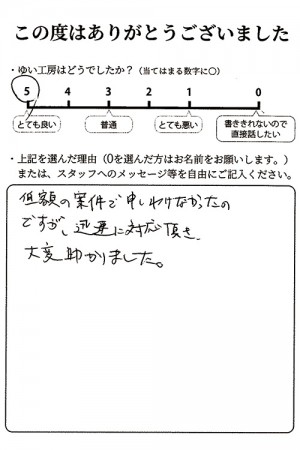 この度はありがとうございました
・ゆい工房はどうでしたか？（当てはまる数字に○）
5 4 3 2 1 0
とても良い 普通 とても悪い 書ききれないので直接話したい
・上記を選んだ理由（0を選んだ方はお名前をお願いします。）
または、スタッフへのメッセージ等を自由にご記入ください。
低額の案件で申しわけなかったの
ですが、迅速に対応頂き、
大変助かりました。